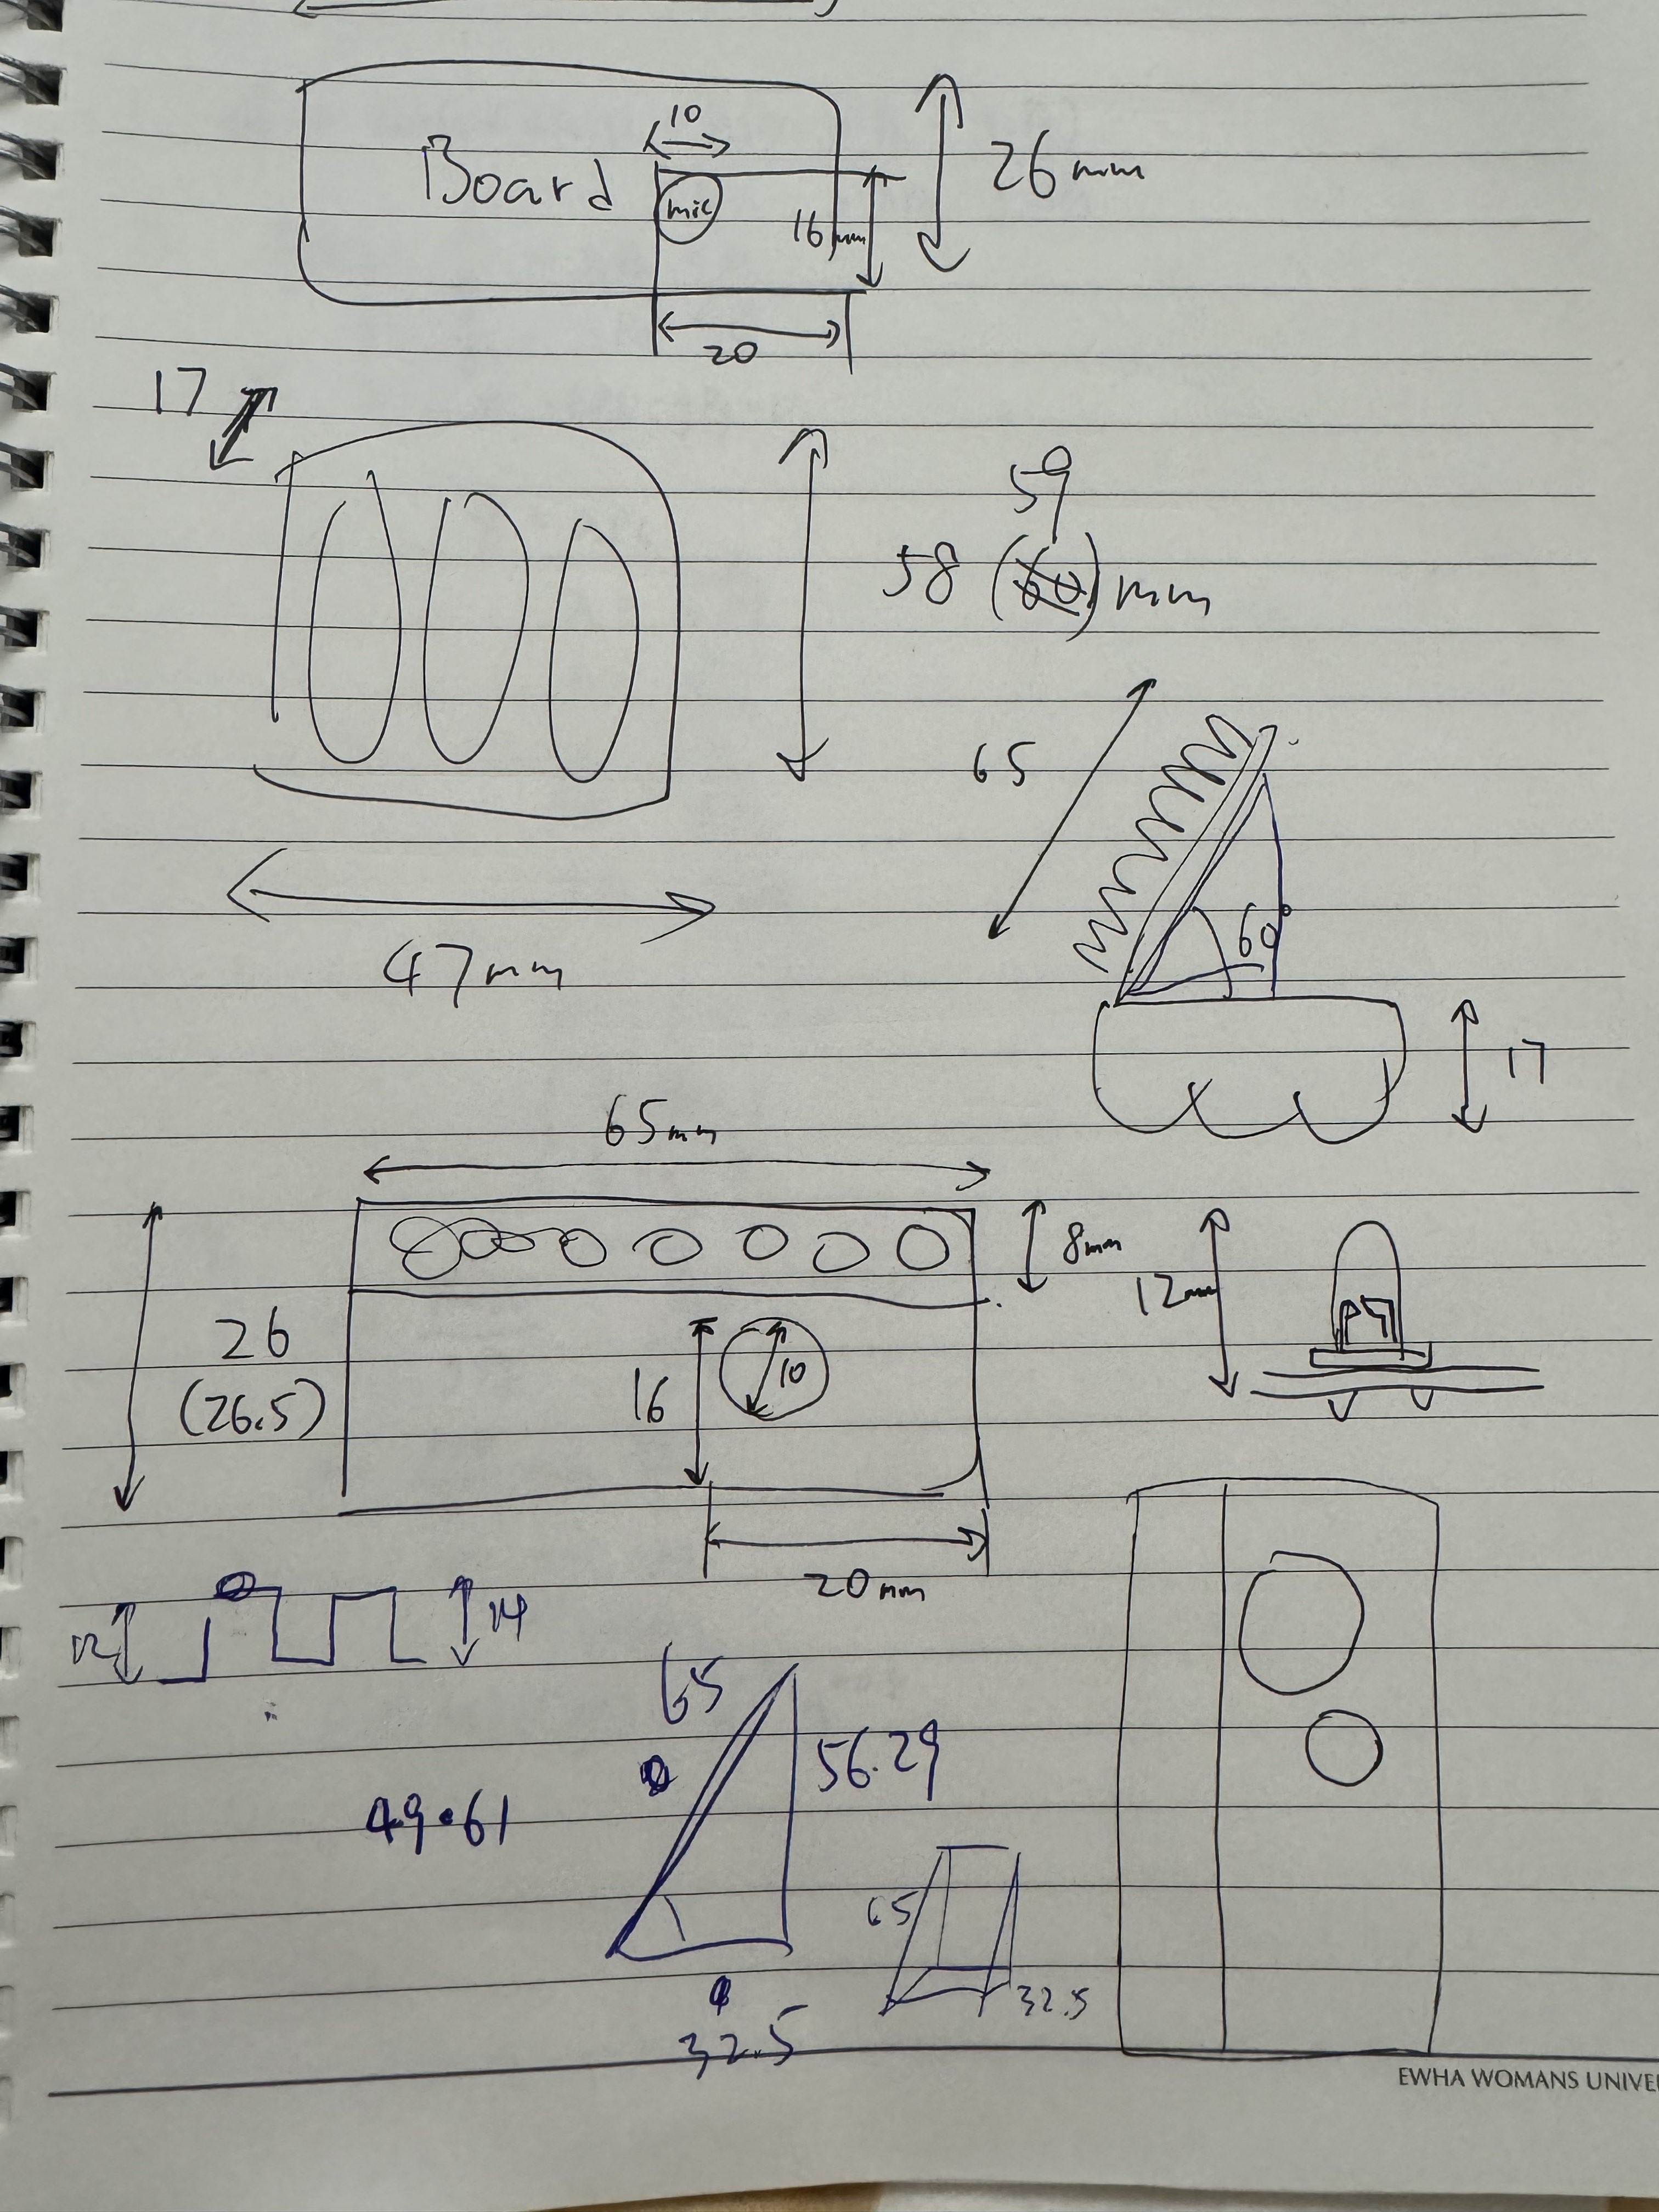 10
Board
mic
16mm
26mm
20
17
59
58 (60)mm
47mm
65
60°
17
65mm
8mm
12mm
26
(26.5)
16
10
20mm
12
14
65
56.29
49.61
32.5
65
32.5
EWHA WOMANS UNIVE